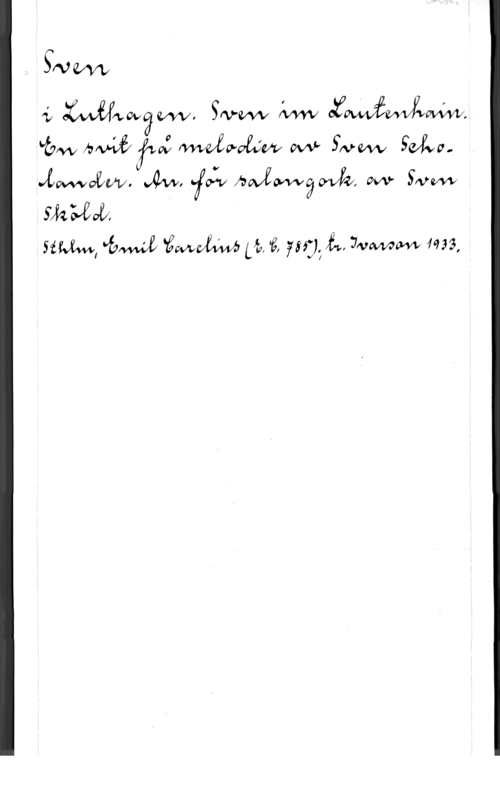 Sven
i Luthagen. Sven im Lautenhain.
En svit frå melodier av Sven Scho-
lander. Arr. för salongork. av Sven
Sköld.
Sthlm, Emil Carelius (E. C. 785); tr. Ivarson 1933.